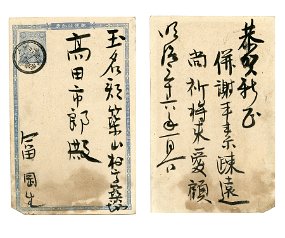 玉名郡築山村
高田市郎殿
冨岡生
恭賀新正
併謝平素疎遠
尚祈将来愛顧
明治二十六年一月一日